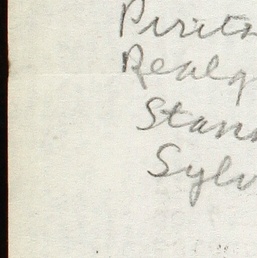 Pirit
Realg
Stann
Sylv